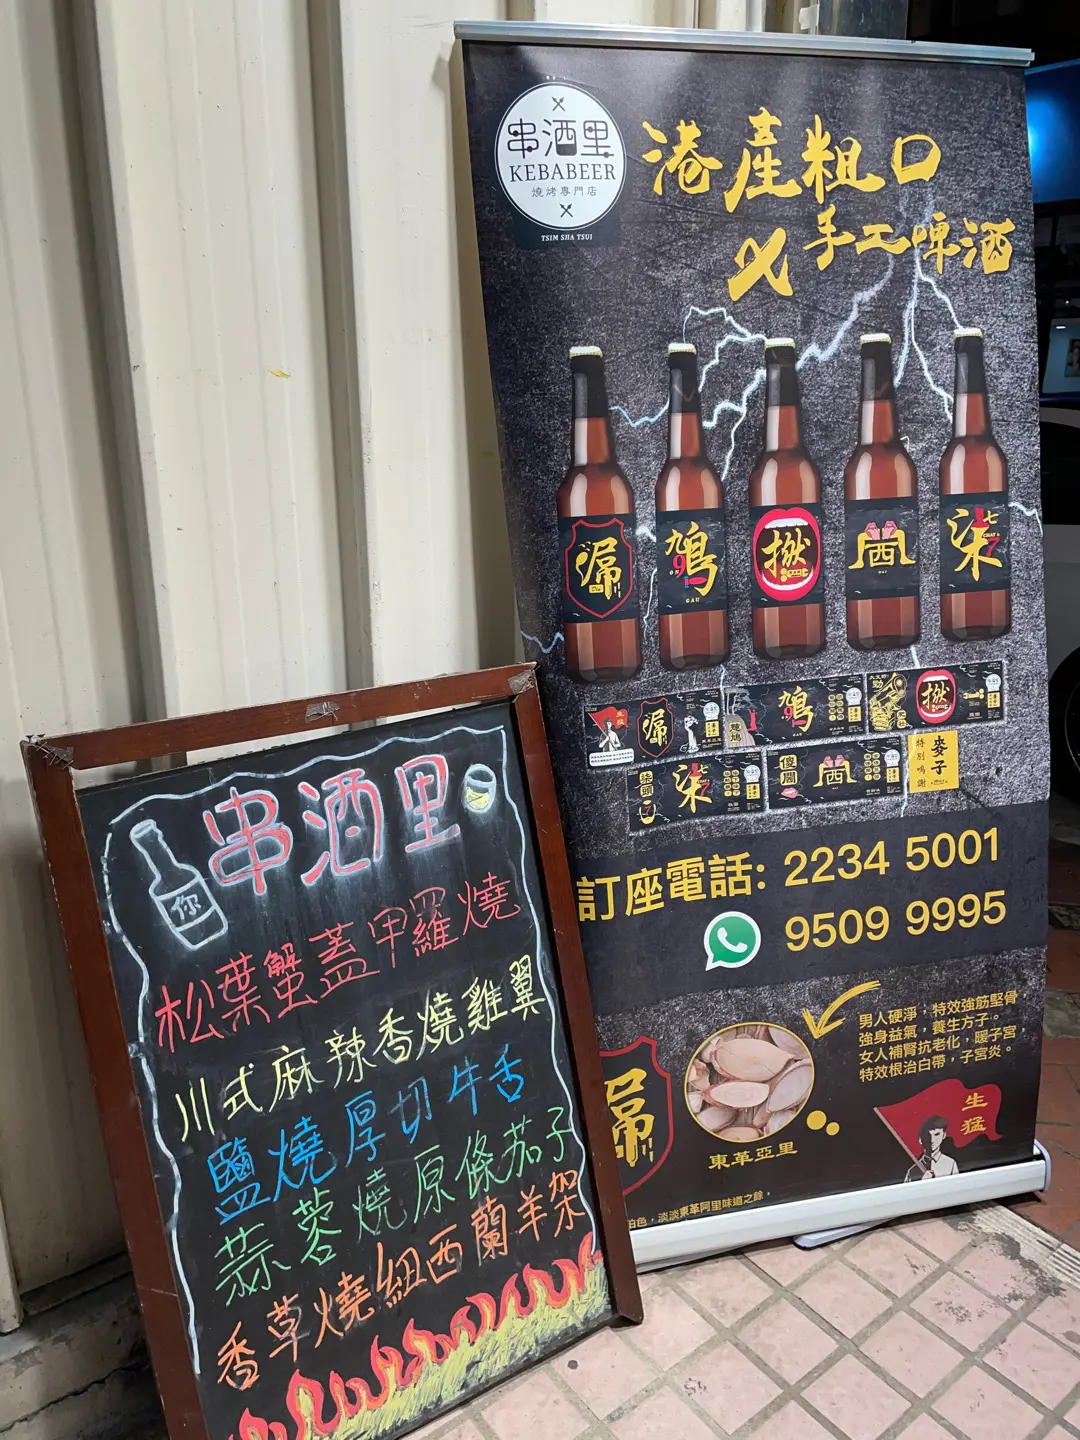 串酒里
KEBABEER
燒烤專門店
TSIM SHA TSUI
港產粗口
X手工啤酒
九
9
鳩
GAU
撚
西
柒
七
7
鳩
撚
柒
西
麥子
特別鳴謝
訂座電話: 2234 5001
9509 9995
男人硬淨,特效強筋堅骨
強身益氣,養生方子。
女人補腎抗老化,暖子宮,
特效根治白帶,子宮炎。
東革亞里
生猛
泊色,淡淡東革阿里味道之餘,
串酒里
你
松葉蟹蓋甲羅燒
川式麻辣香燒雞翼
鹽燒厚切牛舌
蒜蓉燒原條茄子
香草燒紐西蘭羊架